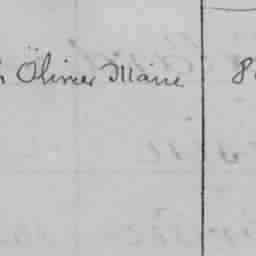 Olivier Marie 8